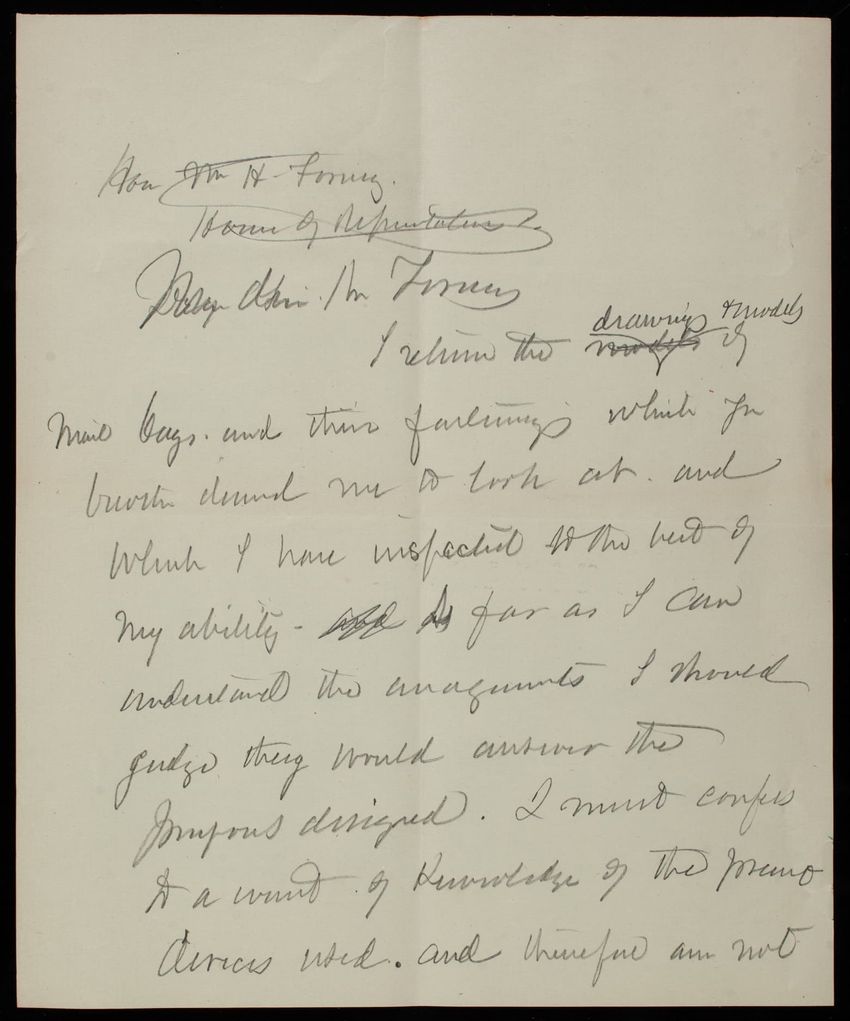 Hon Wm H. Forney.
House of Representatives.
My Dear Mr Forney
I return the drawings & models of
mail bags. and their fastenings which your
brother desired me to look at. and
which I have inspected to the best of
my ability - As far as I can
understand the arrangements I should
judge they would answer the
purpose designed. I must confess
to a want of Knowledge of the previous
devices used. and therefore am not